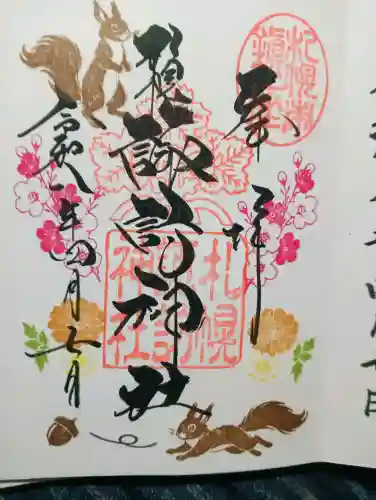 奉拝
札幌諏訪神社
札幌諏訪神社
令和八年四月七日